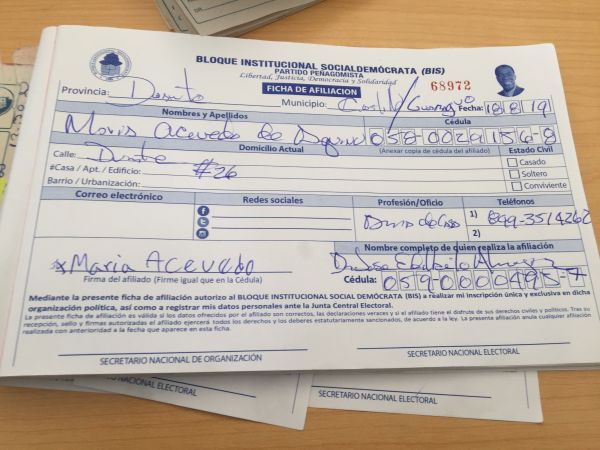 BLOQUE INSTITUCIONAL SOCIALDEMÓCRATA (BIS)
PARTIDO PEÑAGOMISTA
Libertad, Justicia, Democracia y Solidaridad
FICHA DE AFILIACIÓN
68972
Provincia: Municipio: Fecha: 18 8 19
Nombres y Apellidos Cédula
Acevedo de
Domicilio Actual (Anexar copia de cédula del afiliado) Estado Civil
Calle: Duarte Casado
#Casa / Apt. / Edificio: #26 Soltero
Barrio / Urbanización: Conviviente
Correo electrónico Redes sociales Profesión/Oficio Teléfonos
1)
2)
Nombre completo de quien realiza la afiliación
x Maria Acevedo
Firma del afiliado (Firme igual que en la Cédula) Cédula: 059-0000495-7
Mediante la presente ficha de afiliación autorizo al BLOQUE INSTITUCIONAL SOCIAL DEMÓCRATA (BIS) a realizar mi inscripción única y exclusiva en dicha
organización política, así como a registrar mis datos personales ante la Junta Central Electoral.
La presente ficha de afiliación es válida si los datos ofrecidos por el afiliado son correctos, las declaraciones veraces y si el afiliado tiene el disfrute de sus derechos civiles y políticos. Tras su
recepción, sello y firmas autorizadas el afiliado ejercerá todos los derechos y los deberes estatutariamente sancionados, de acuerdo a la ley. La presente afiliación anula cualquier afiliación
realizada con anterioridad a la fecha que aparece en esta ficha.
SECRETARIO NACIONAL DE ORGANIZACIÓN SECRETARIO NACIONAL ELECTORAL
SECRETARIO NACIONAL ELECTORAL